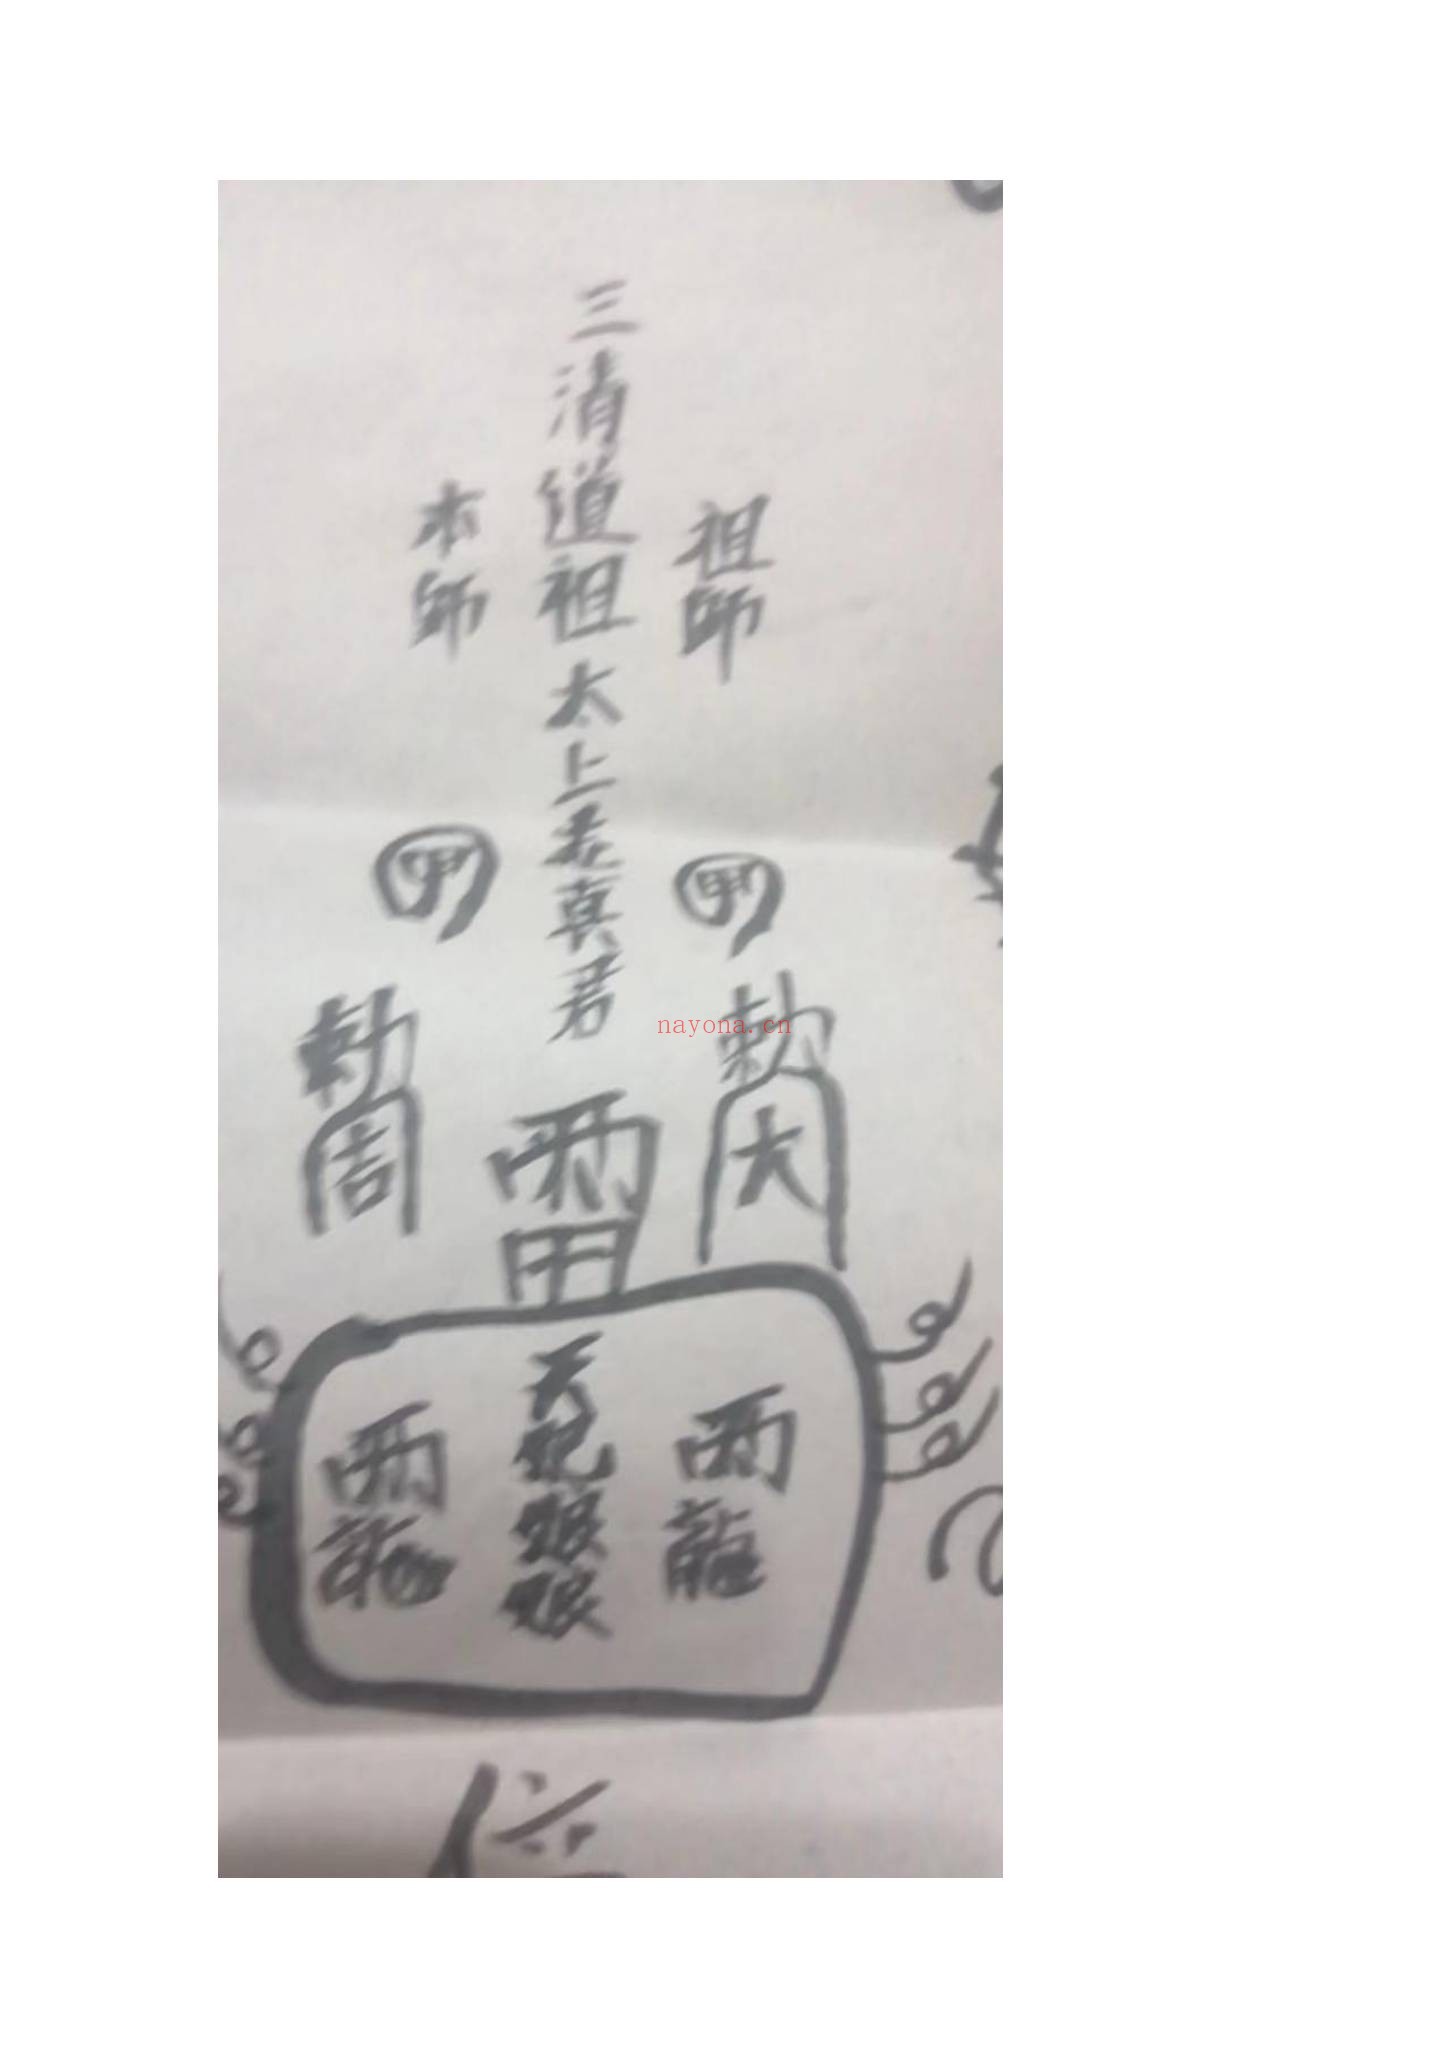 三清道祖太上老真君
祖師
本師
勅大
勅周
雷
天妃娘娘
雨龍
雨龍
nayona.cn